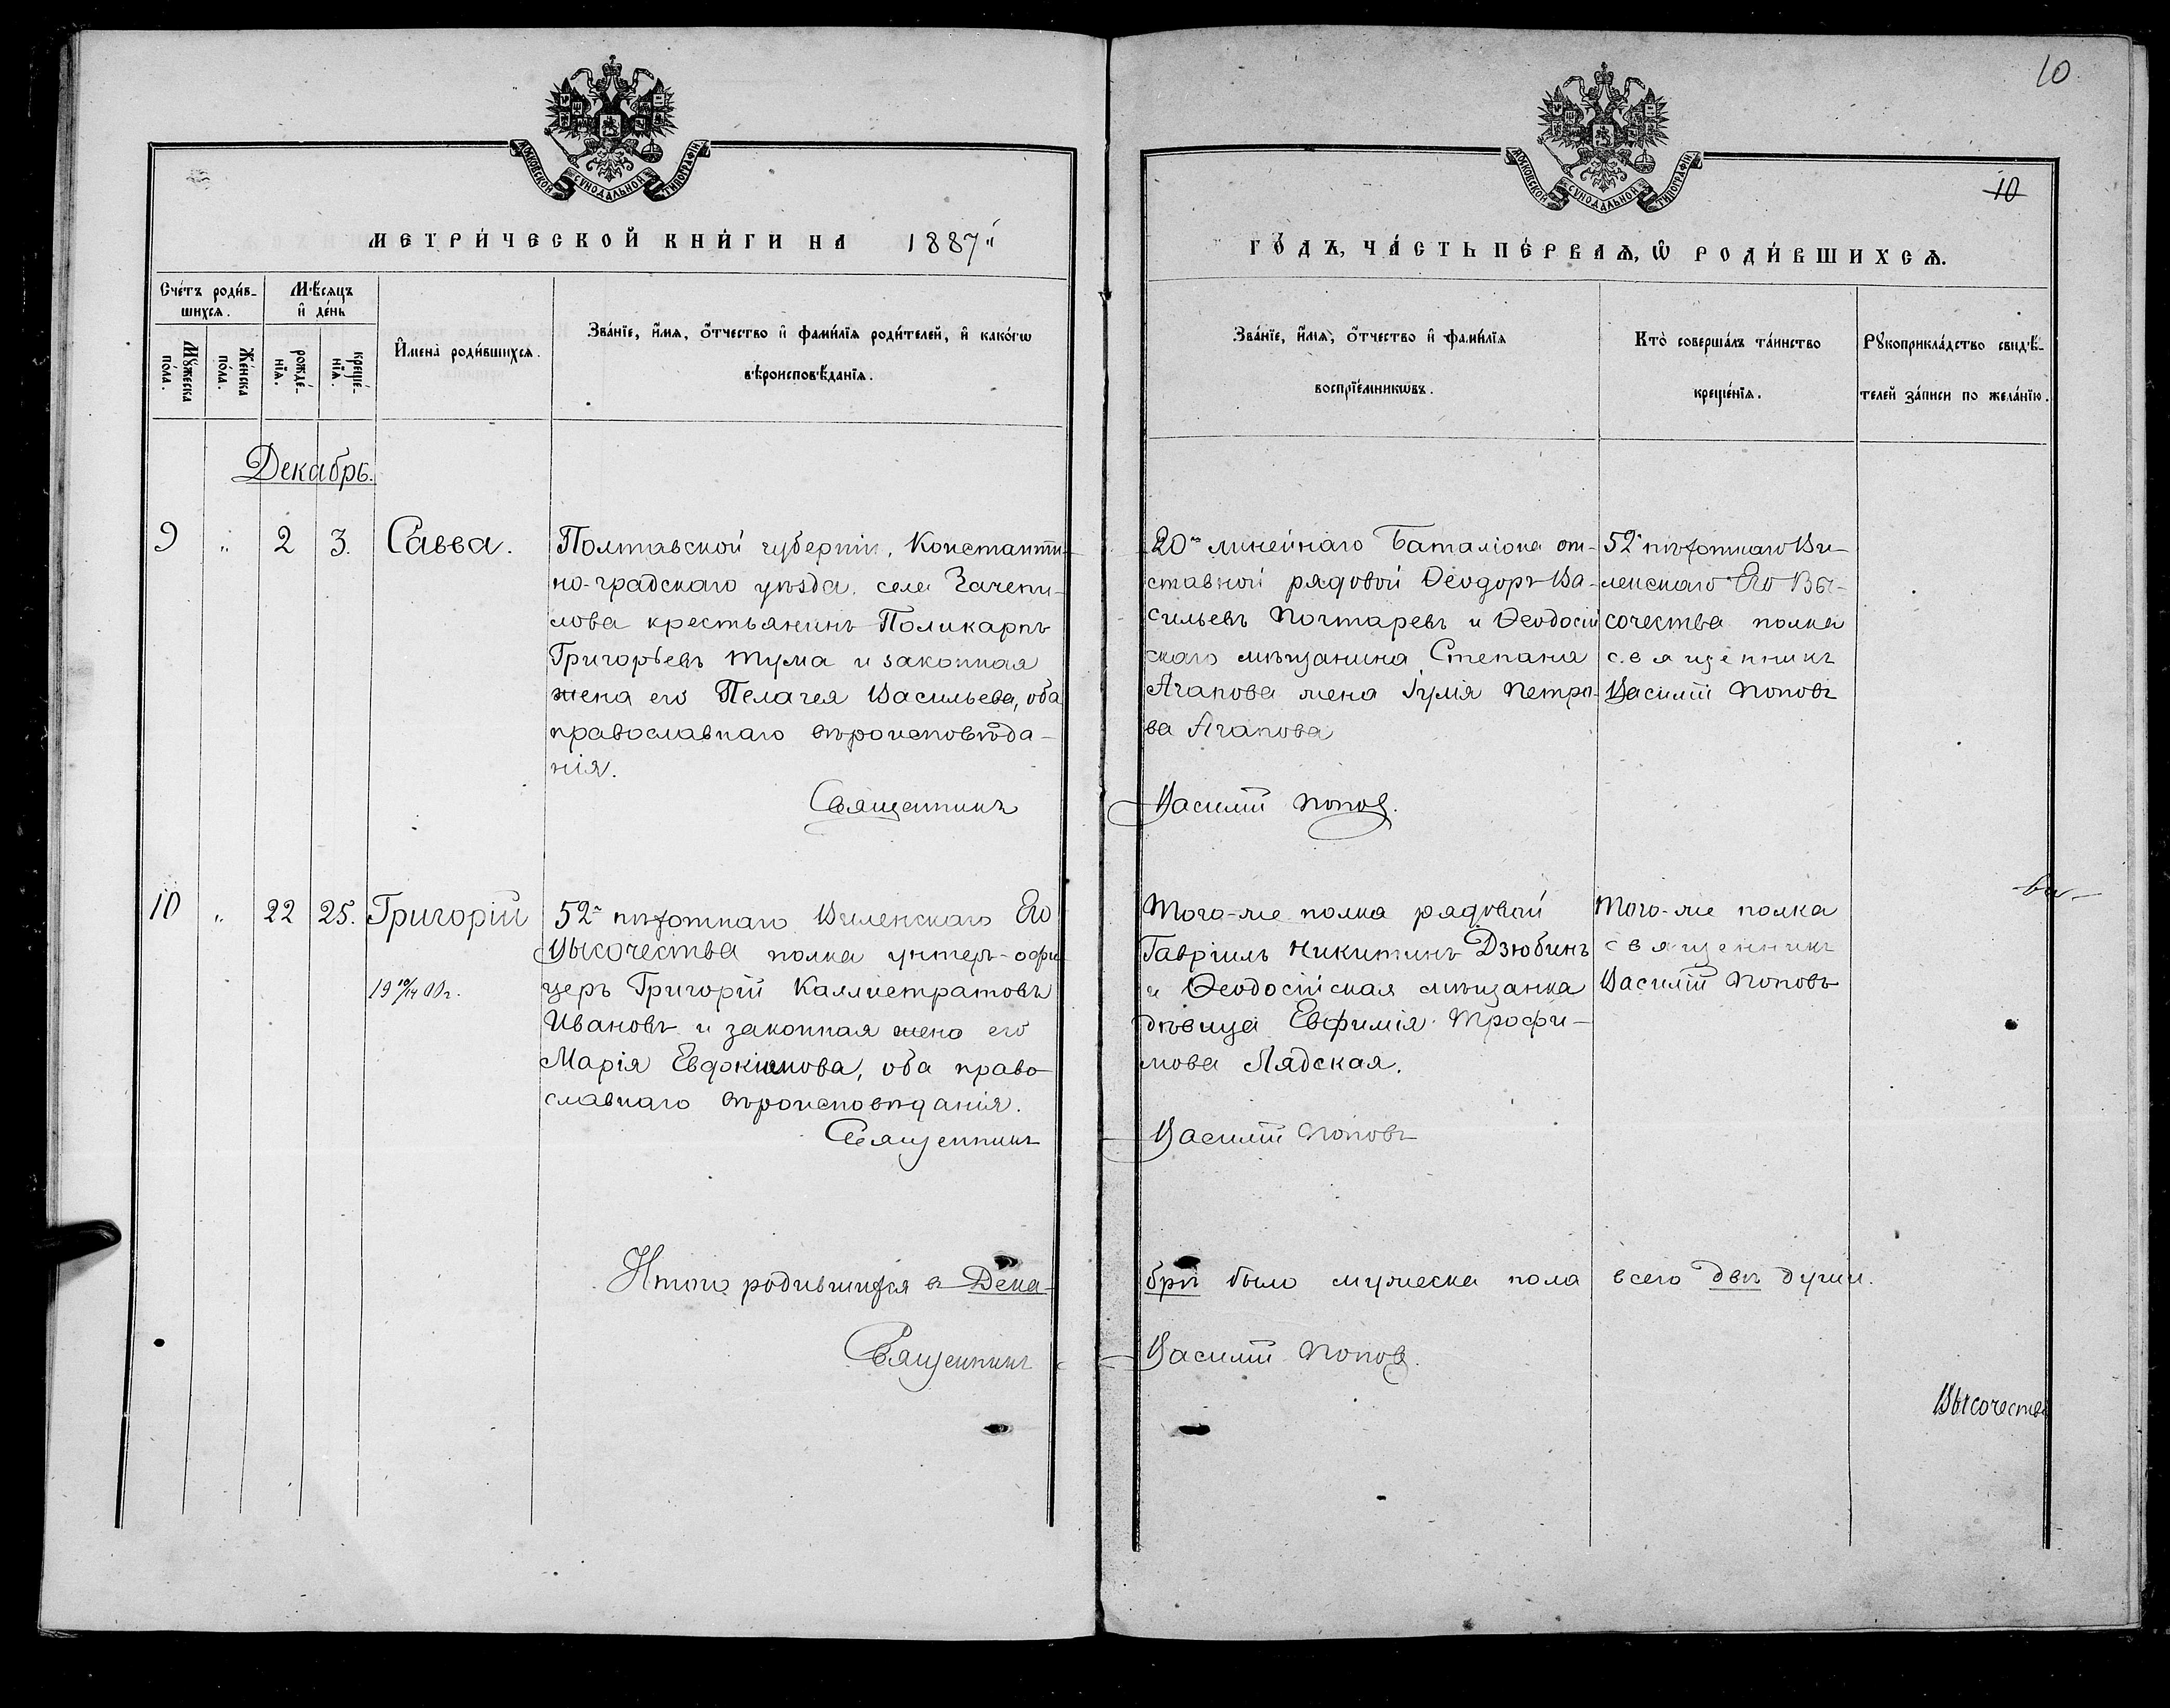 10
МОСКОВСКОЙ СУНОДАЛЬНОЙ ТИПОГРАФІИ
МОСКОВСКОЙ СУНОДАЛЬНОЙ ТИПОГРАФІИ
10
МЕТРИ́ЧЕСКОЙ КНИ́ГИ НА 1887
ГО́ДЪ, ЧА́СТЬ ПЕ́РВАѦ, Ѡ РОДИ́ВШИХСѦ.
Сче́тъ роди́в-
шихсѧ.
Мꙋ́жеска
по́ла.
Же́нска
по́ла.
Мѣ́сѧцъ
и҆ де́нь
рожде́-
нїѧ.
креще́-
нїѧ.
И҆мена̀ роди́вшихсѧ.
Зва́нїе, и҆́мѧ, ѻ҆́тчество и҆ фами́лїѧ роди́телей, и҆ како́гѡ
вѣроисповѣ́данїѧ.
Зва́нїе, и҆́мѧ, ѻ҆́тчество и҆ фами́лїѧ
воспрїе́мникѡвъ.
Кто̀ соверша́лъ та́инство
креще́нїѧ.
Рꙋкоприкла́дство свидѣ́-
телей за́писи по жела́нїю.
Декабрь.
9 " 2 3. Савва.
Полтавской губерніи, Константи-
но-градскаго уѣзда, села Зачепи-
лова крестьянинъ Поликарпъ
Григорьевъ Тума и законная
жена его Пелагея Васильева, оба
православнаго вѣроисповѣда-
нія.
Священникъ
20го линейнаго Баталіона от-
ставной рядовой Ѳеодоръ Ва-
сильевъ Почтаревъ и Ѳеодосій
скаго мѣщанина Степана
Агапова жена Іулія Петро-
ва Агапова
Василій Попов.
52го пѣхотнаго Ви-
ленскаго Его Вы-
сочества полка
священникъ
Василій Поповъ
10 " 22 25. Григорій
19 10/14 00 г.
52го пѣхотнаго Виленскаго Его
Высочества полка унтеръ-офи
церъ Григорій Каллистратовъ
Ивановъ и законная жена его
Марія Евдокимова, оба право-
славнаго вѣроисповѣданія.
Священникъ
Того-же полка рядовой
Гавріилъ Никитинъ Дзюбинъ
и Ѳеодосійская мѣщанка
дѣвица Евфимія Трофи-
мова Лядская.
Василій Поповъ
Того-же полка
священникъ
Василій Поповъ
Итого родившихся въ Дека-
брѣ было мужеска пола всего двѣ души.
Священникъ
Василій Попов.
Высочества